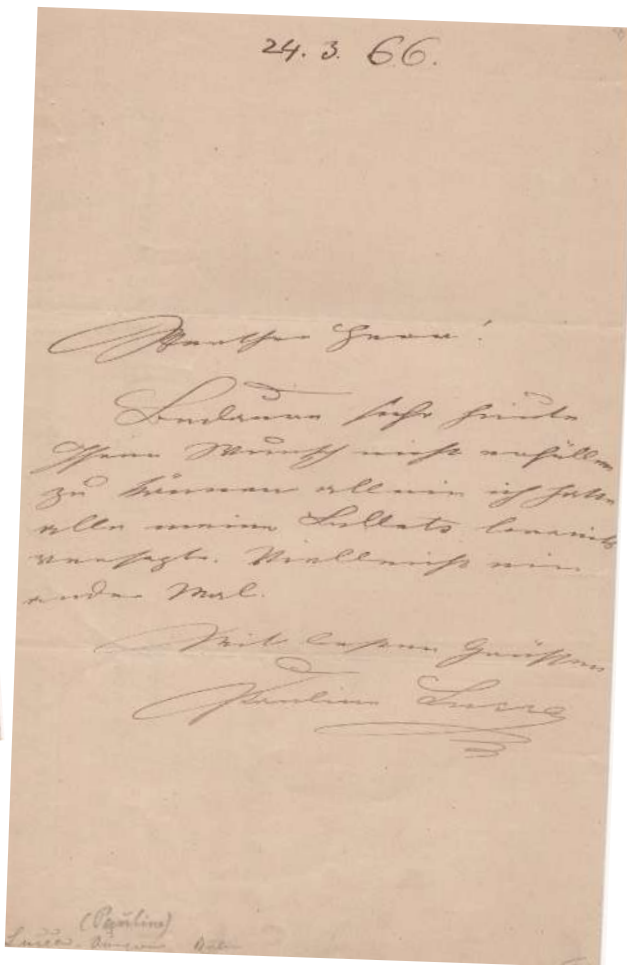 24. 3. 66.
Werther Herr!
Bedaure sehr heute
Ihren Wunsch nicht erfüllen
zu können allein ich habe
alle meine Billets bereits
versagt. Vielleicht ein
ander Mal.
Mit besten Grüßen
Pauline Lucca
(Pauline)
Lucca